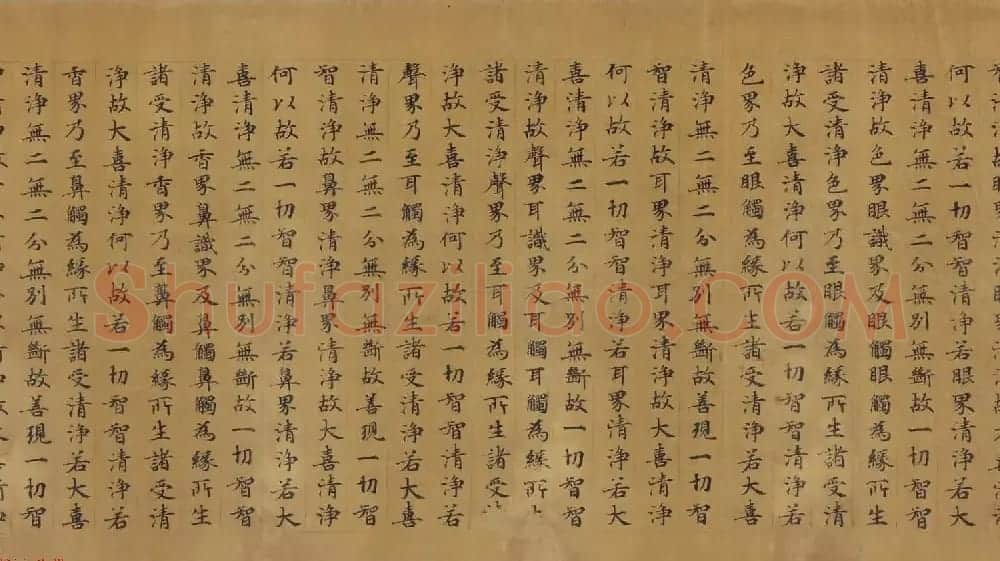 何以故若一切智智清淨若眼界清淨若大
喜清淨無二無二分無別無斷故一切智智
清淨故色界眼識界及眼觸眼觸為緣所生
諸受清淨色界乃至眼觸為緣所生諸受清
淨故大喜清淨何以故若一切智智清淨若
色界乃至眼觸為緣所生諸受清淨若大喜
清淨無二無二分無別無斷故善現一切智
智清淨故耳界清淨耳界清淨故大喜清淨
何以故若一切智智清淨若耳界清淨若大
喜清淨無二無二分無別無斷故一切智智
清淨故聲界耳識界及耳觸耳觸為緣所
諸受清淨聲界乃至耳觸為緣所生諸受
淨故大喜清淨何以故若一切智智清淨若
聲界乃至耳觸為緣所生諸受清淨若大喜
清淨無二無二分無別無斷故善現一切智
智清淨故鼻界清淨鼻界清淨故大喜清淨
何以故若一切智智清淨若鼻界清淨若大
喜清淨無二無二分無別無斷故一切智智
清淨故香界鼻識界及鼻觸鼻觸為緣所生
諸受清淨香界乃至鼻觸為緣所生諸受清
淨故大喜清淨何以故若一切智智清淨若
香界乃至鼻觸為緣所生諸受清淨若大喜
清淨無二無二分無別無斷故善現一切智
Shufazilico.COM